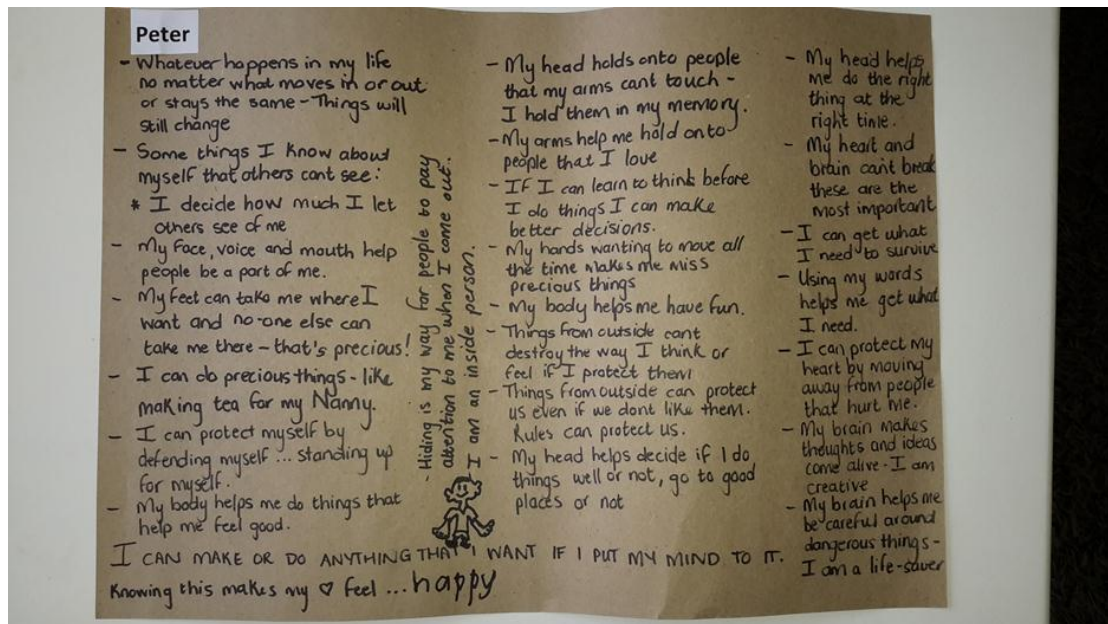 Peter
- Whatever happens in my life
no matter what moves in or out
or stays the same - Things will
still change
- Some things I know about
myself that others cant see:
* I decide how much I let
others see of me
- My face, voice and mouth help
people be a part of me.
- My feet can take me where I
want and no-one else can
take me there - that's precious!
- I can do precious things - like
making tea for my Nanny.
- I can protect myself by
defending myself ... standing up
for myself.
- My body helps me do things that
help me feel good.
- Hiding is my way for people to pay
attention to me when I come out.
I am an inside person.
- My head holds onto people
that my arms cant touch -
I hold them in my memory.
- My arms help me hold onto
people that I love
- If I can learn to think before
I do things I can make
better decisions.
- My hands wanting to move all
the time makes me miss
precious things
- My body helps me have fun.
- Things from outside cant
destroy the way I think or
feel if I protect them
- Things from outside can protect
us even if we dont like them.
Rules can protect us.
- My head helps decide if I do
things well or not, go to good
places or not
- My head helps
me do the right
thing at the
right time.
- My heart and
brain can't break
these are the
most important
- I can get what
I need to survive
- Using my words
helps me get what
I need.
- I can protect my
heart by moving
away from people
that hurt me.
- My brain makes
thoughts and ideas
come alive - I am
creative
- My brain helps me
be careful around
dangerous things -
I am a life-saver
I CAN MAKE OR DO ANYTHING THAT I WANT IF I PUT MY MIND TO IT.
Knowing this makes my ♡ feel ... happy